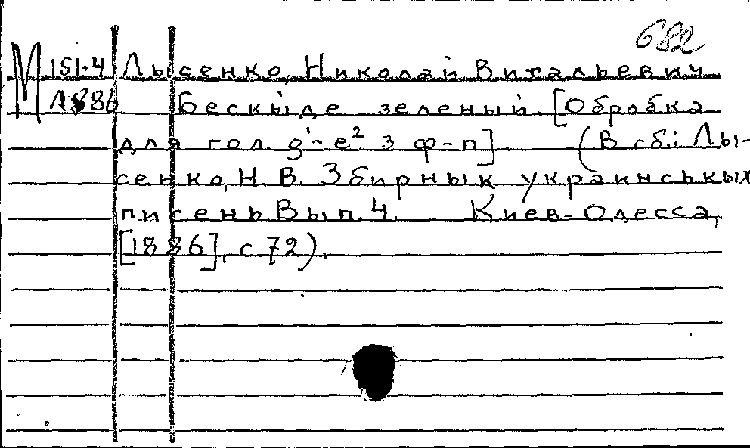 682
М 151-4 Лысенко, Николай Витальевич
Л886 Бескыде зеленый [Обробка
для гол. g¹-e² з ф-п]. (В сб.: Лы-
сенко, Н. В. Збирнык украинськых
писень Вып. 4. Киев-Одесса,
[1886], с. 72).